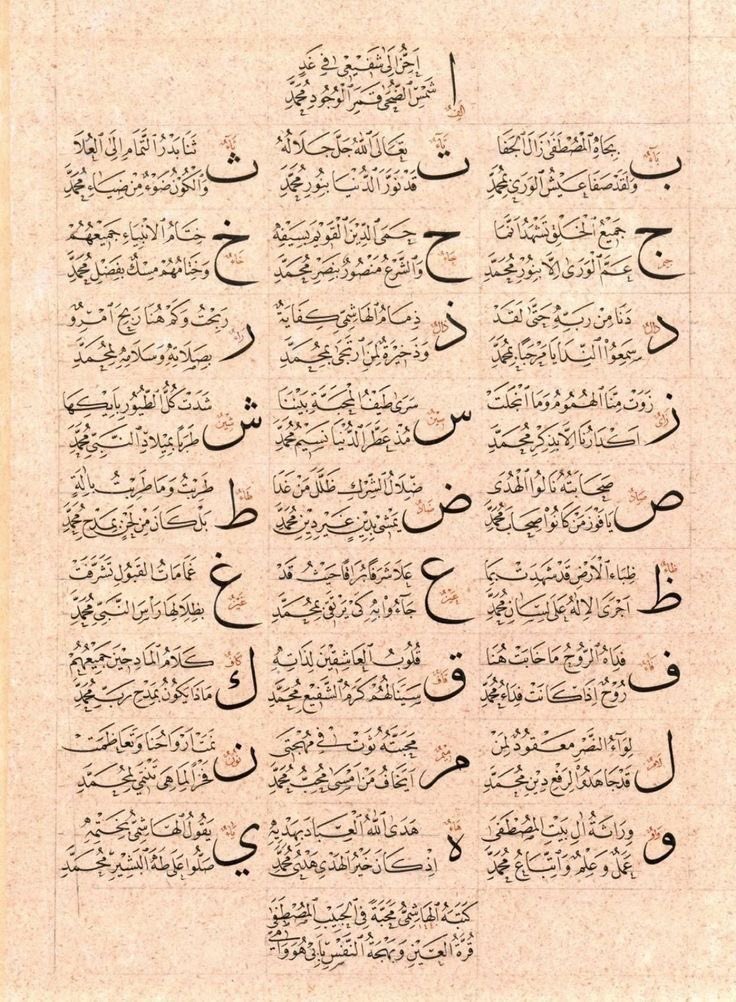 ا
ألف
أَحِنُّ إِلَى شَفِيعِي فِي غَدٍ
شَمْسِ الضُّحَى قَمَرِ الْوُجُودِ مُحَمَّدِ
ب
باء
بِجَاهِ الْمُصْطَفَى زَالَ الْجَفَا
وَلَقَدْ صَفَا عَيْشُ الْوَرَى بِمُحَمَّدِ
ت
تاء
تَعَالَى اللهُ جَلَّ جَلَالُهُ
قَدْ نَوَّرَ الدُّنْيَا بِنُورِ مُحَمَّدِ
ث
ثاء
ثَنَا بَدْرُ التَّمَامِ إِلَى الْعُلَا
وَالْكَوْنُ ضَوْءٌ مِنْ ضِيَاءِ مُحَمَّدِ
ج
جيم
جَمِيعُ الْخَلْقِ تَشْهَدُ أَنَّمَا
عَمَّ الْوَرَى إِلَّا بِنُورِ مُحَمَّدِ
ح
حاء
حَمَى الدِّينَ الْقَوِيمَ بِسَيْفِهِ
وَالشَّرْعُ مَنْصُورٌ بِنَصْرِ مُحَمَّدِ
خ
خاء
خِتَامُ الْأَنْبِيَاءِ جَمِيعُهُمْ
وَخِتَامُهُمْ مِسْكٌ بِفَضْلِ مُحَمَّدِ
د
دال
دَنَا مِنْ رَبِّهِ حَتَّى لَقَدْ
سَمِعُوا النِّدَا يَا مَرْحَبًا بِمُحَمَّدِ
ذ
ذال
ذِمَامُ الْهَاشِمِيِّ كِفَايَةٌ
وَذَخِيرَةٌ لِمَنِ ارْتَجَى بِمُحَمَّدِ
ر
راء
رَبِحْتُ وَكَمْ هُنَا رَبِحَ امْرُؤٌ
بِصَلَاتِهِ وَسَلَامِهِ لِمُحَمَّدِ
ز
زاي
زُوَتْ مِنَّا الْهُمُومُ وَمَا انْجَلَتْ
أَكْدَارُنَا إِلَّا بِذِكْرِ مُحَمَّدِ
س
سين
سَرَى طَيْفُ الْمَحَبَّةِ بَيْنَنَا
مُذْ عَطَّرَ الدُّنْيَا نَسِيمُ مُحَمَّدِ
ش
شين
شَدَتْ كُلُّ الطُّيُورِ بِأَيْكِهَا
طَرَبًا بِمِيلَادِ النَّبِيِّ مُحَمَّدِ
ص
صاد
صَحَابَتُهُ نَالُوا الْهُدَى
يَا فَوْزَ مَنْ كَانُوا صِحَابَ مُحَمَّدِ
ض
ضاد
ضَلَالُ الشِّرْكِ ظَلَّلَ مَنْ غَدَا
يَمْشِي بِدِينٍ غَيْرِ دِينِ مُحَمَّدِ
ط
طاء
طَرِبْتُ وَمَا طَرِبْتُ بِآلَةٍ
بَلْ كَانَ مِنْ لَحْنٍ بِمَدْحِ مُحَمَّدِ
ظ
ظاء
ظِبَاءُ الْأَرْضِ قَدْ شَهِدَتْ بِمَا
أَجْرَى الْإِلَهُ عَلَى لِسَانِ مُحَمَّدِ
ع
عين
عَلَا شَرَفًا بُرَاقًا حَيْثُ قَدْ
جَاءُوا بِهِ كَيْ يَرْتَقِي بِمُحَمَّدِ
غ
غين
غَمَامَاتُ الْقَبُولِ تَشَرَّفَتْ
بِظِلَالِهَا رَأْسَ النَّبِيِّ مُحَمَّدِ
ف
فاء
فِدَاهُ الرُّوحُ مَا خَابَتْ هُنَا
رُوحٌ إِذَا كَانَتْ فِدَاءَ مُحَمَّدِ
ق
قاف
قُلُوبُ الْعَاشِقِينَ لِذَاتِهِ
سَيَنَالُهُمْ كَرَمُ الشَّفِيعِ مُحَمَّدِ
ك
كاف
كَلَامُ الْمَادِحِينَ جَمِيعُهُمْ
مَاذَا يَكُونُ بِمَدْحِ رَبِّ مُحَمَّدِ
ل
لام
لِوَاءُ النَّصْرِ مَعْقُودٌ لِمَنْ
قَدْ جَاهَدُوا لِرَفْعِ دِينِ مُحَمَّدِ
م
ميم
مَحَبَّتُهُ ثَوَتْ فِي مُهْجَتِي
أَيَخَافُ مَنْ أَمْسَى مُحِبَّ مُحَمَّدِ
ن
نون
نَمَتْ أَرْوَاحُنَا وَتَعَاظَمَتْ
فَخْرًا لِمَا هِيَ تَنْتَمِي لِمُحَمَّدِ
و
واو
وِرَاثَةُ آلِ بَيْتِ الْمُصْطَفَى
عَمَلٌ وَعِلْمٌ وَاتِّبَاعُ مُحَمَّدِ
ه
هاء
هَدَى اللهُ الْعِبَادَ بِهَدْيِهِ
إِذْ كَانَ خَيْرُ الْهَدْيِ هَدْيَ مُحَمَّدِ
ي
ياء
يَقُولُ الْهَاشِمِيُّ بِخَتْمِهِ
صَلُّوا عَلَى طَهَ الْبَشِيرِ مُحَمَّدِ
كَتَبَهُ الْهَاشِمِيُّ مَحَبَّةً فِي الْحَبِيبِ الْمُصْطَفَى
قُرَّةُ الْعَيْنِ وَبَهْجَةُ النَّفْسِ بِأَبِي هُوَ وَأُمِّي